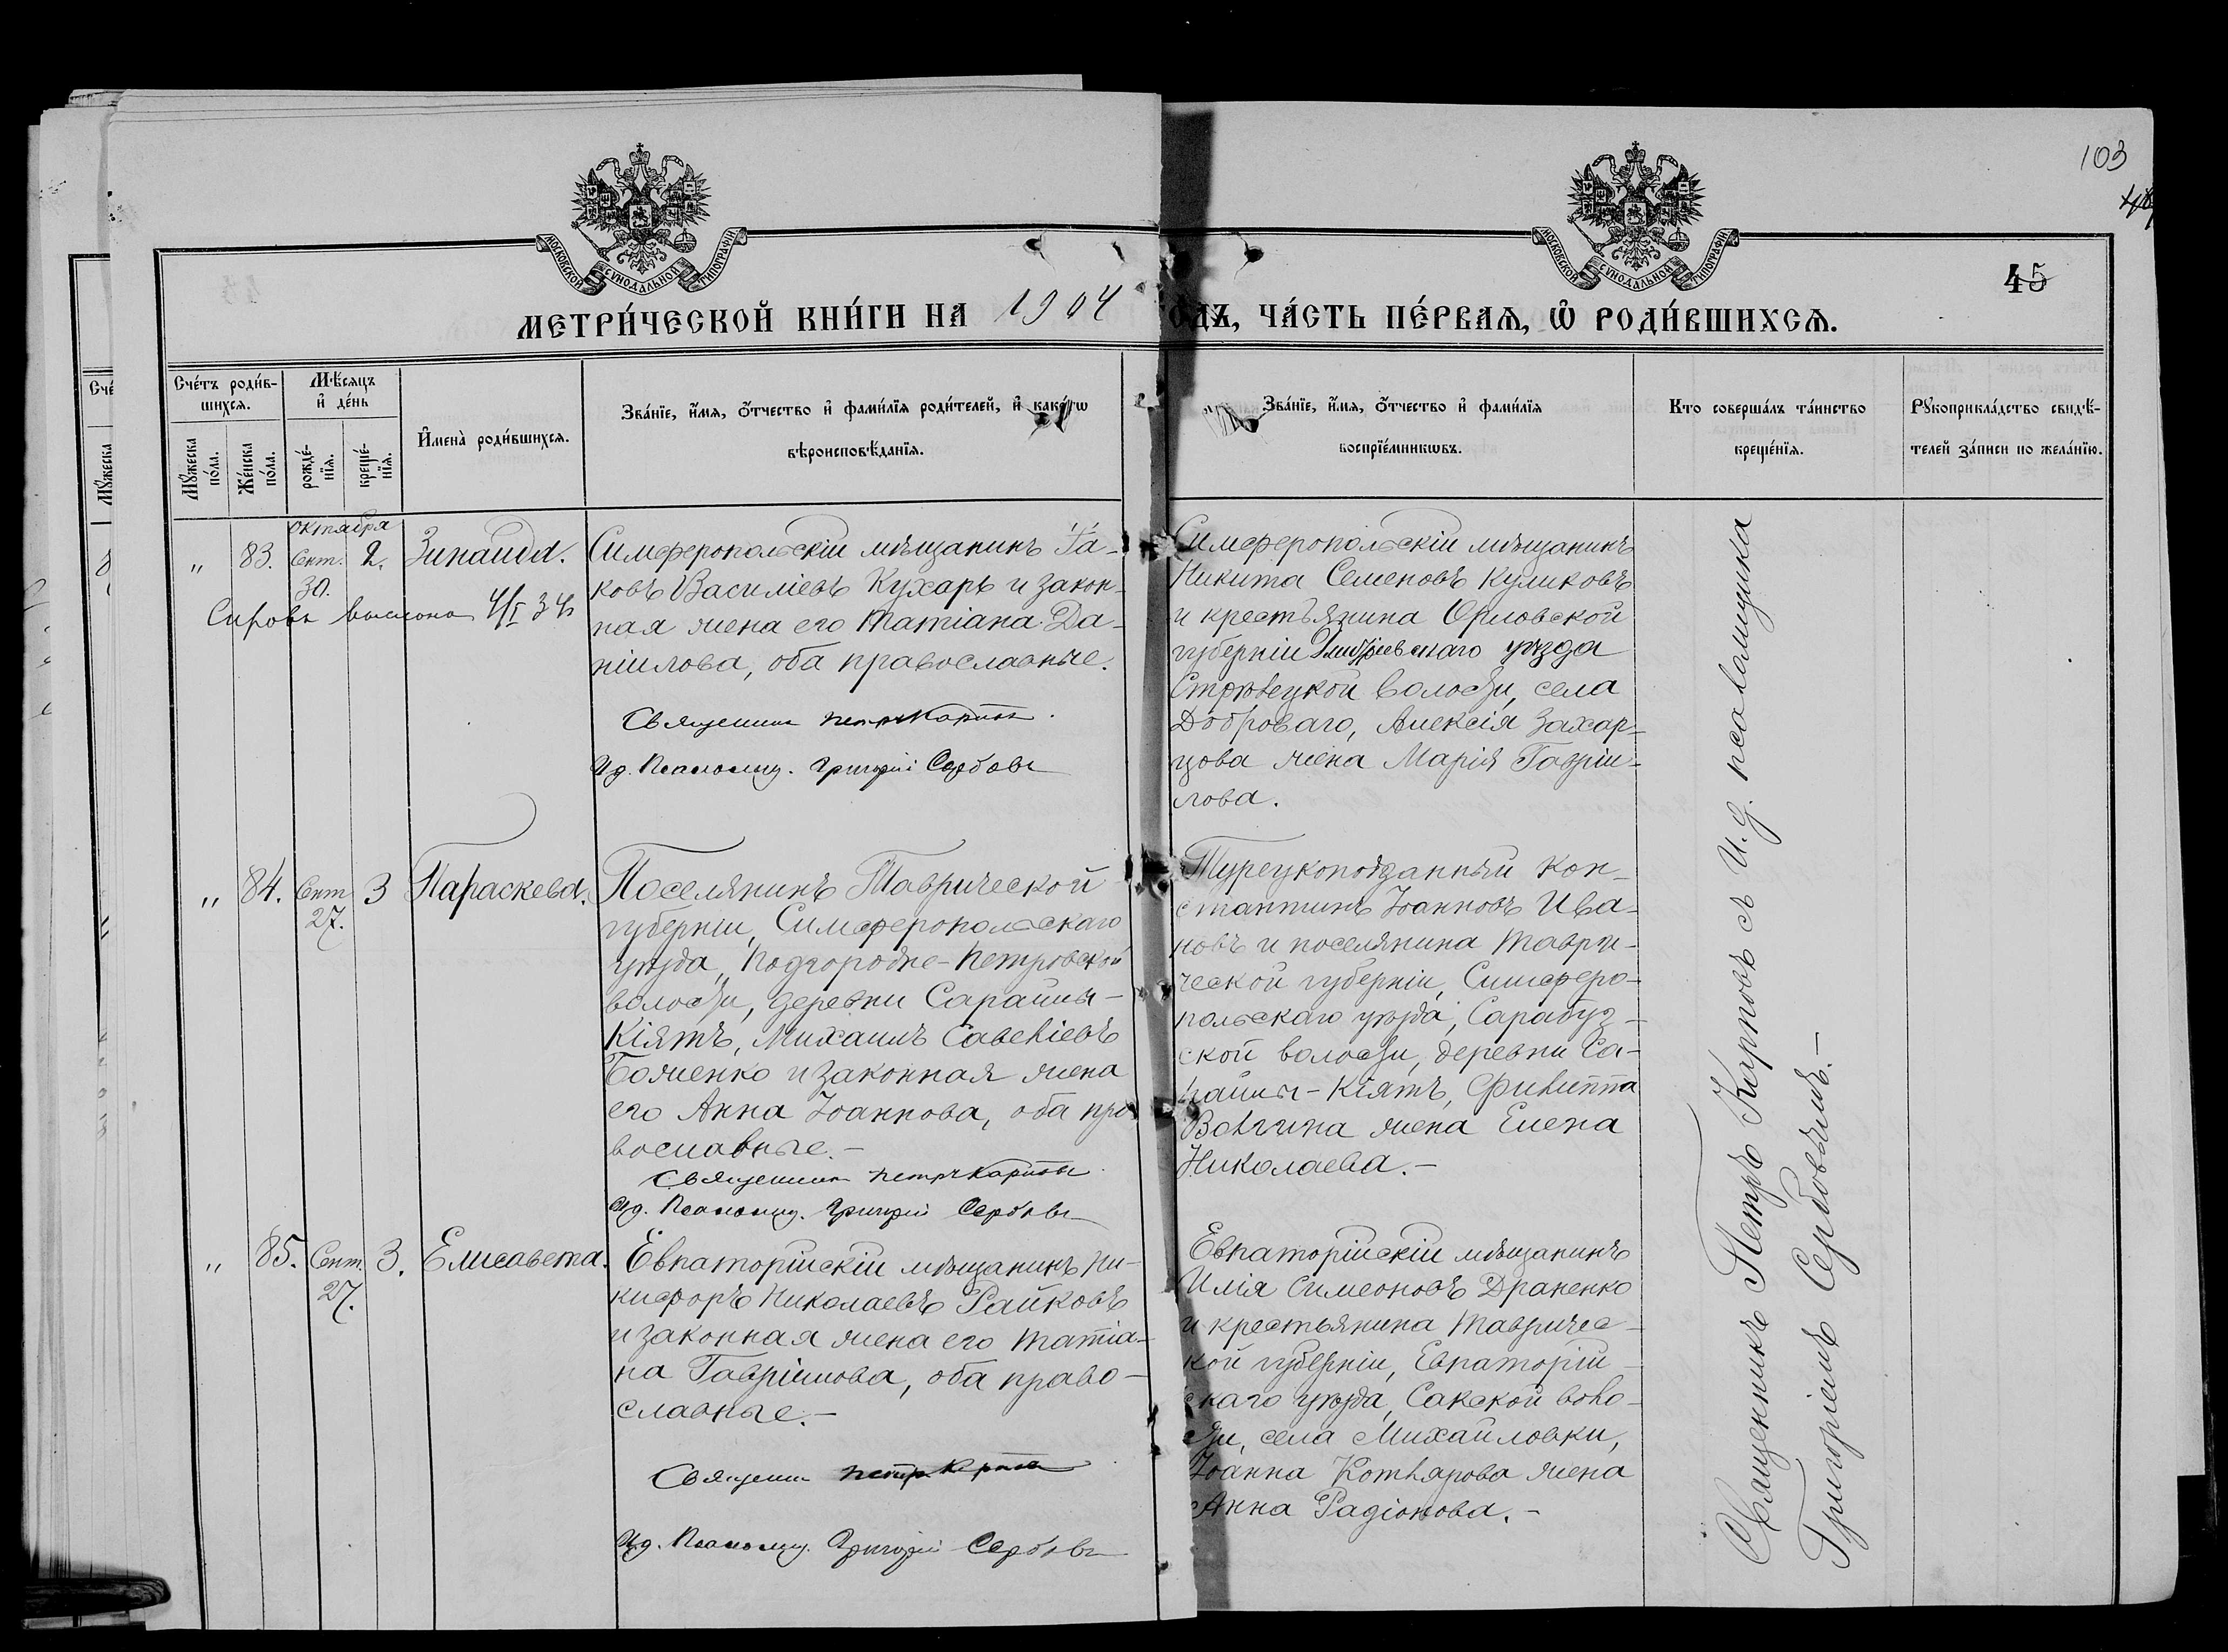 103
45
МОСКОВСКОЙ СѴНОДАЛЬНОЙ ТИПОГРАФІИ
МОСКОВСКОЙ СѴНОДАЛЬНОЙ ТИПОГРАФІИ
МЕТРИ́ЧЕСКОЙ КНИ́ГИ НА 1904
ОДЪ, ЧА́СТЬ ПЕ́РВАѦ, Ѡ҆ РОДИ́ВШИХСѦ.
Сче́тъ роди́в-
шихсѧ.
Мꙋ́жеска по́ла.
Же́нска по́ла.
Мѣ́сѧцъ
и҆ де́нь
рожде́-
нїѧ.
креще́-
нїѧ.
И҆мена̀ роди́вшихсѧ.
Зва́нїе, и҆́мѧ, ѻ҆́тчество и҆ фамѝлїѧ роди́телей, и҆ како́гѡ
вѣроисповѣ́данїѧ.
Зва́нїе, и҆́мѧ, ѻ҆́тчество и҆ фамѝлїѧ
воспрїе́мникѡвъ.
Кто соверша́лъ та́инство
креще́нїѧ.
Рꙋкоприкла́дство свидѣ́-
телей за́писи по жела́нїю.
октября
„ 83. Сент. 2. Зинаида.
30.
Симферопольскій мѣщанинъ Іа-
ковъ Василіевъ Кухарь и закон-
ная жена его Татіана Да-
ніилова, оба православные.
Священник Петръ Карповъ.
И д. Псаломщ. Григорій Сербовъ
Симферопольскій мѣщанинъ
Никита Семеновъ Куликовъ
и крестьянина Орловской
губерніи уѣзда
волости, села
Доброваго, Алексія Захар-
цова жена Марія Гавріи-
лова.
„ 84. Сент 3 Параскева.
27.
Поселянинъ Таврической
губерніи, Симферопольскаго
уѣзда, Подгородне-Петровской
волости, деревни Сарайлы-
Кіятъ, Михаилъ Савеліевъ
Боженко и законная жена
его Анна Іоаннова, оба пра
вославные.-
Священник Петръ Карповъ
И д. Псаломщ. Григорій Сербовъ
Турецкоподданный Кон-
стантинъ Іоанновъ Ива-
новъ и поселянина Таври-
ческой губерніи, Симферо-
польскаго уѣзда, Сарабуз-
ской волости, деревни Са-
райлы-Кіятъ, Филиппа
Волгина жена Елена
Николаева.-
„ 85. Сент. 3. Елисавета.
27.
Евпаторійскій мѣщанинъ Ни-
кифоръ Николаевъ Райковъ
и законная жена его Татіа-
на Гавріилова, оба право-
славные.-
Священник Петръ Карповъ
И д. Псаломщ. Григорій Сербовъ
Евпаторійскій мѣщанинъ
Илія Симеоновъ Драненко
и крестьянина Тавричес-
кой губерніи, Евпаторій-
скаго уѣзда, Сакской воло-
сти, села Михайловки,
Іоанна Котлярова жена
Анна Радіонова.-
Священникъ Петръ Карповъ съ И. д. псаломщика
Григоріемъ Сербовымъ.-